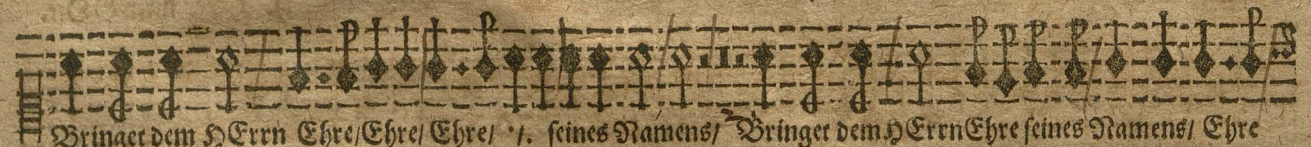 Bringet dem HErrn Ehre/ Ehre/ Ehre/ ·/. seines Namens/ Bringet dem HErrn Ehre seines Namens/ Ehre